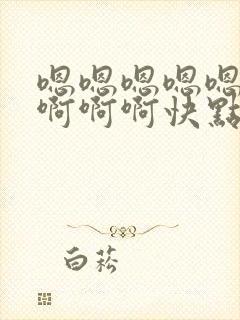 嗯嗯嗯嗯嗯
啊啊啊快點
白菘